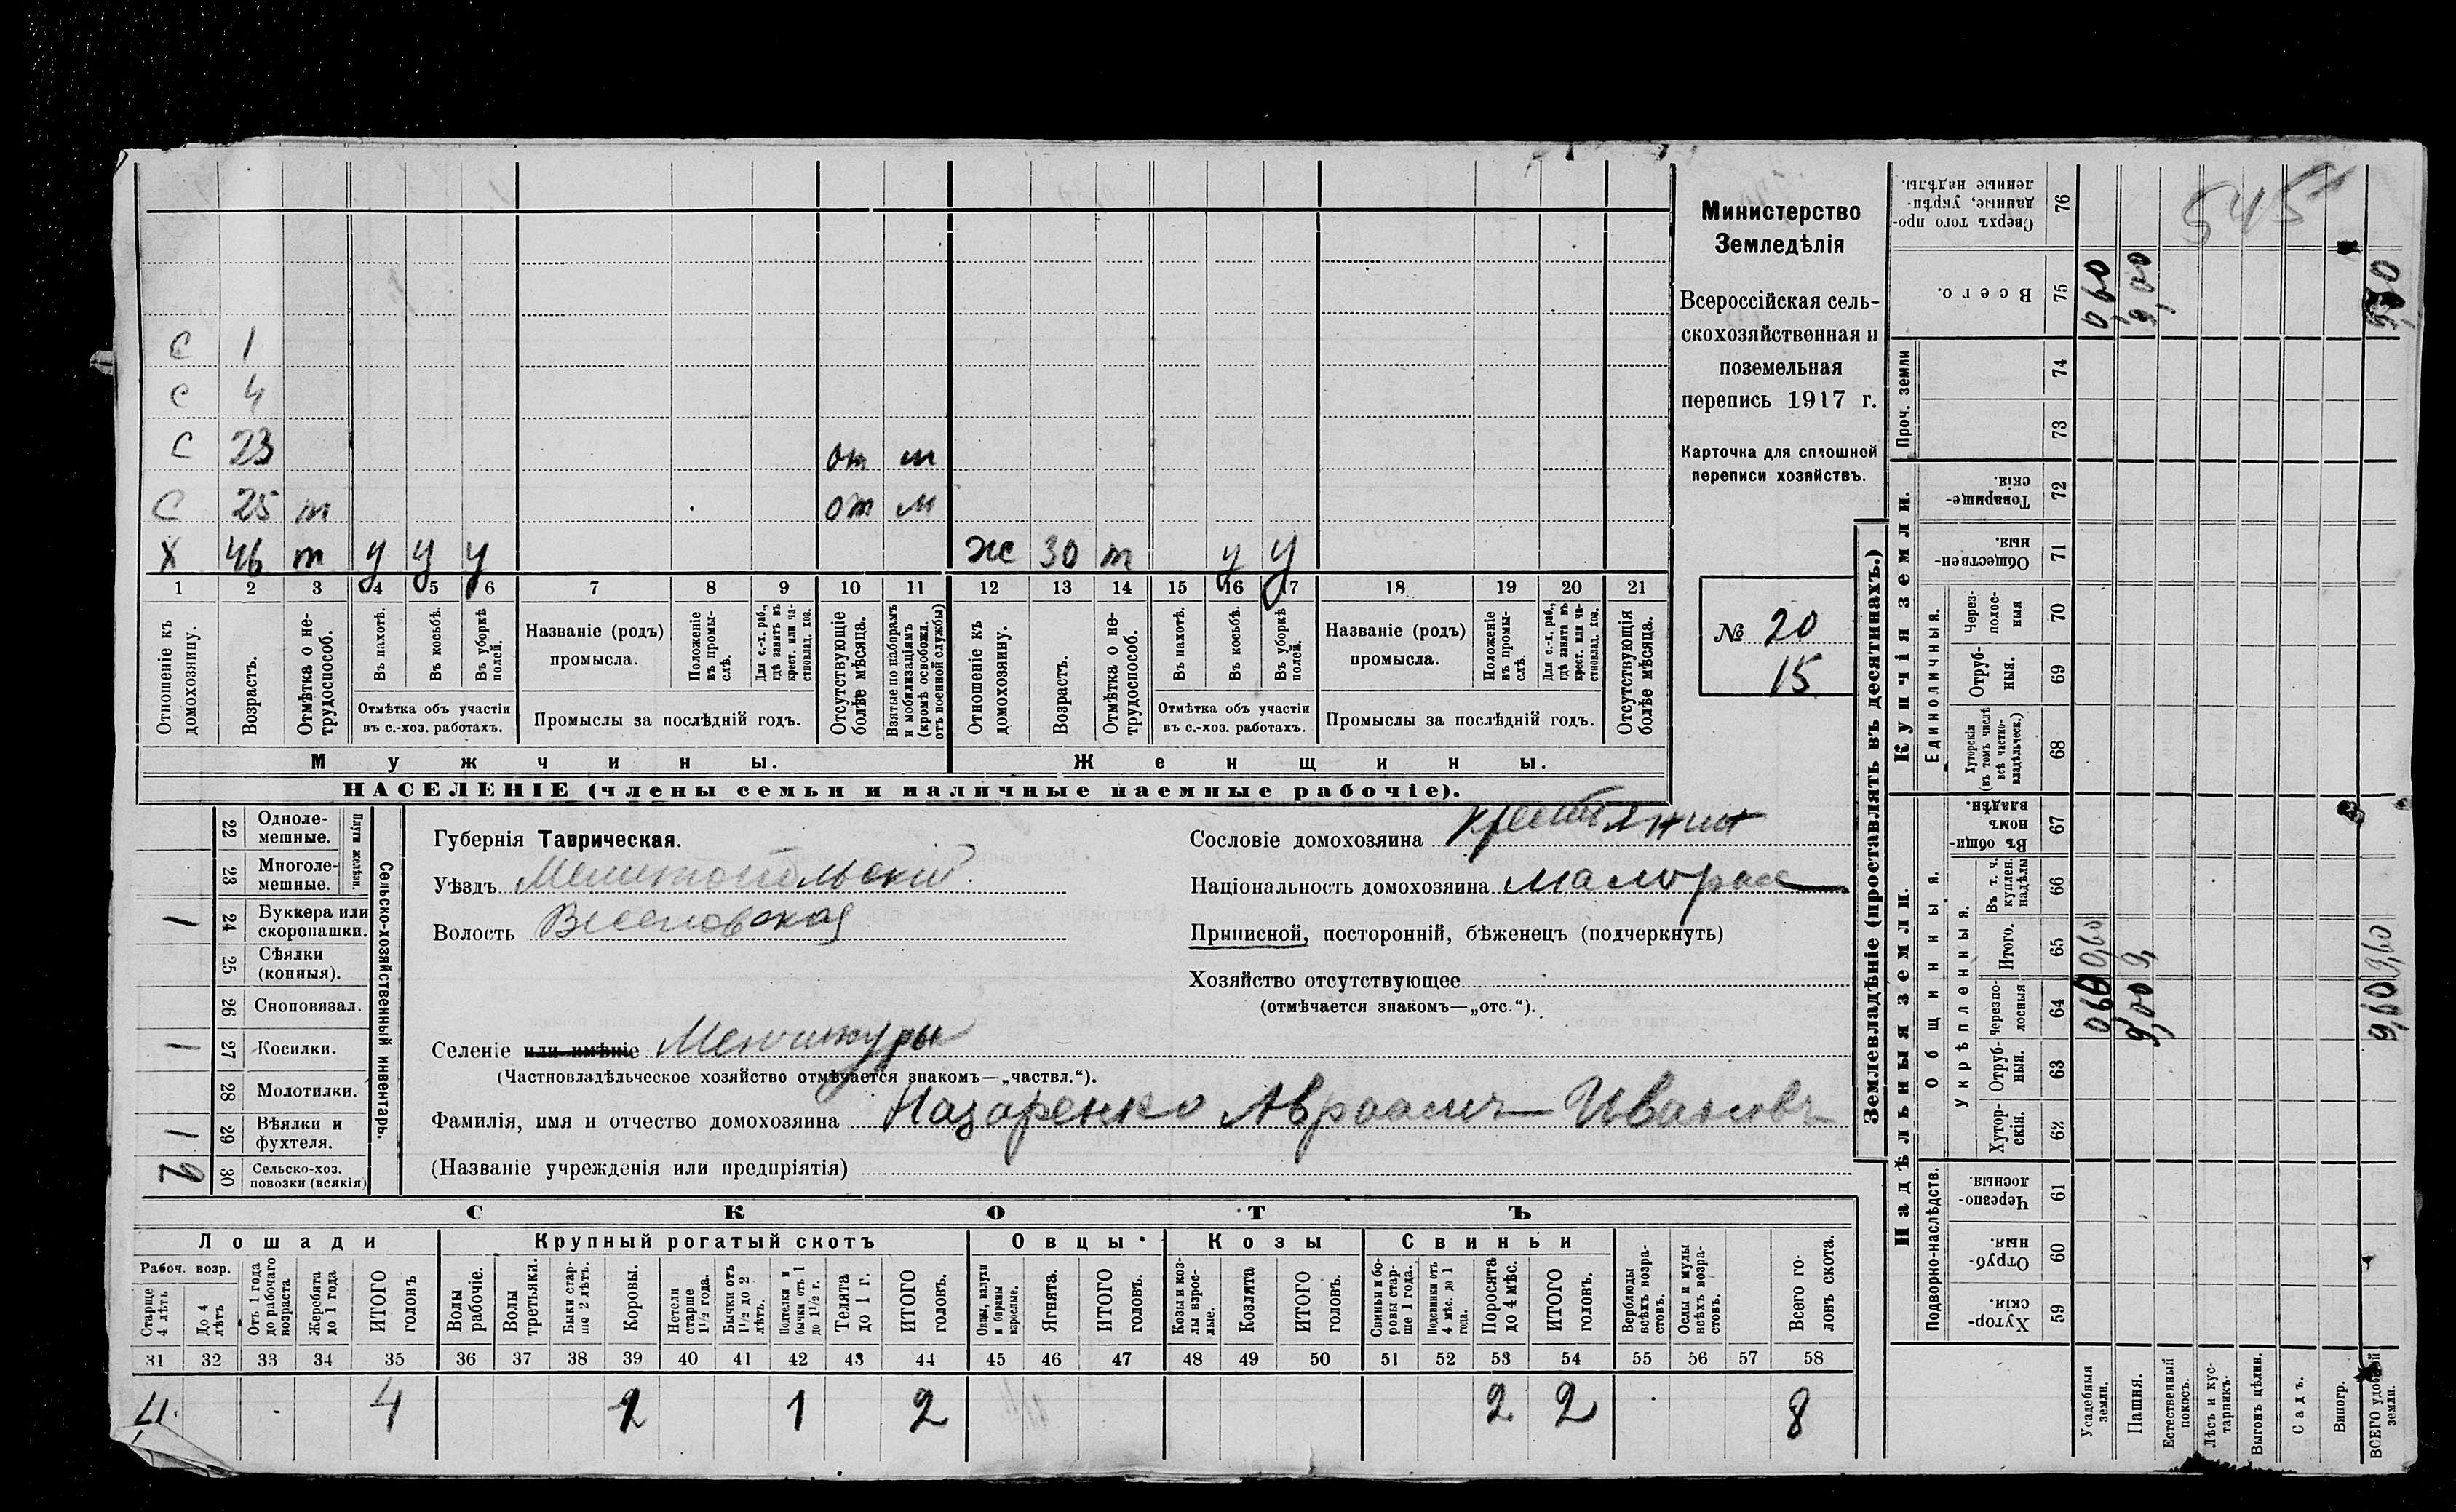 Министерство
Земледѣлія
Всероссійская сель-
скохозяйственная и
поземельная
перепись 1917 г.
Карточка для сплошной
переписи хозяйствъ.
№ 20
15
545
С 1
С 4
С 23 от м
С 25 т от м
Х 46 т у у у ж 30 т у у
1 2 3 4 5 6 7 8 9 10 11 12 13 14 15 16 17 18 19 20 21
Отношеніе къ домохозяину.
Возрастъ.
Отмѣтка о не-трудоспособ.
Въ пахотѣ.
Въ косьбѣ.
Въ уборкѣ полей.
Отмѣтка объ участіи
въ с.-хоз. работахъ.
Названіе (родъ)
промысла.
Положеніе въ промы-слѣ.
Для с.-х. раб., гдѣ занятъ въ крест. или ча-стновлад. хоз.
Промыслы за послѣдній годъ.
Отсутствующіе болѣе мѣсяца.
Взятые по наборамъ и мобилизаціямъ (кромѣ освобожд. отъ военной службы)
Отношеніе къ домохозяину.
Возрастъ.
Отмѣтка о не-трудоспособ.
Въ пахотѣ.
Въ косьбѣ.
Въ уборкѣ полей.
Отмѣтка объ участіи
въ с.-хоз. работахъ.
Названіе (родъ)
промысла.
Положеніе въ промы-слѣ.
Для с.-х. раб., гдѣ занята въ крест. или ча-стновлад. хоз.
Промыслы за послѣдній годъ.
Отсутствующія болѣе мѣсяца.
Мужчины.
Женщины.
НАСЕЛЕНІЕ (члены семьи и наличные наемные рабочіе).
Сельско-хозяйственный инвентарь.
Плуги желѣзн.
22 Одноле-мешные.
23 Многоле-мешные.
1 24 Буккера или скоропашки.
25 Сѣялки (конныя).
26 Сноповязал.
1 27 Косилки.
28 Молотилки.
1 29 Вѣялки и фухтеля.
2 30 Сельско-хоз. повозки (всякія)
Губернія Таврическая.
Уѣздъ Мелитопольскій.
Волость Веселовская
Селеніе или имѣніе Меншикуры
(Частновладѣльческое хозяйство отмѣчается знакомъ—„частвл.“).
Фамилія, имя и отчество домохозяина Назаренко Авраамъ Ивановъ
(Названіе учрежденія или предпріятія)
Сословіе домохозяина крестьянин
Національность домохозяина малорос
Приписной, посторонній, бѣженецъ (подчеркнуть)
Хозяйство отсутствующее
(отмѣчается знакомъ—„отс.“).
СКОТЪ
Лошади
Крупный рогатый скотъ
Овцы
Козы
Свиньи
Рабоч. возр.
Старше 4 лѣтъ
До 4 лѣтъ
Отъ 1 года до рабочаго возраста
Жеребята до 1 года
ИТОГО головъ
Волы рабочіе.
Волы третьяки.
Быки стар-ше 2 лѣтъ.
Коровы.
Нетели старше 1½ года.
Бычки отъ 1½ до 2 лѣтъ.
Подтелки и бычки отъ 1 до 1½ г.
Телята до 1 г.
ИТОГО головъ.
Овцы, валухи и бараны взрослые.
Ягнята.
ИТОГО головъ.
Козы и коз-лы взрос-лые.
Козлята
ИТОГО головъ.
Свиньи и бо-ровы стар-ше 1 года.
Подсвинки отъ 4 мѣс. до 1 года.
Поросята до 4 мѣс.
ИТОГО головъ.
Верблюды всѣхъ возра-стовъ.
Ослы и мулы всѣхъ возра-стовъ.
Всего го-ловъ скота.
31 32 33 34 35 36 37 38 39 40 41 42 43 44 45 46 47 48 49 50 51 52 53 54 55 56 57 58
4 4 1 1 2 2 2 8
Землевладѣніе (проставлять въ десятинахъ.)
Надѣльныя земли.
Купчія земли.
Проч. земли
Подворно-наслѣдств.
Общинныя.
Укрѣпленныя.
Единоличныя.
76 Сверхъ того про-данные, укрѣп-ленные надѣлы.
75 Всего. 0,60 9,00
74
73
72 Товарище-скія.
71 Обществен-ныя.
70 Через-полос-ныя
69 Отруб-ныя.
68 Хуторскія (въ томъ числѣ всѣ частно-владѣльческ.)
67 Въ общи-номъ владѣн.
66 Въ т. ч. куплен. надѣлы
65 Итого. 0,60 9,
64 Черезпо-лосныя 9,00
63 Отруб-ныя.
62 Хутор-скія.
61 Черезпо-лосныя
60 Отруб-ныя.
59 Хутор-скія.
Усадебныя земли.
Пашня.
Естественный покосъ.
Лѣсъ и кус-тарникъ.
Выгонъ цѣлин.
Садъ.
Виногр.
ВСЕГО удобной земли.
9,60